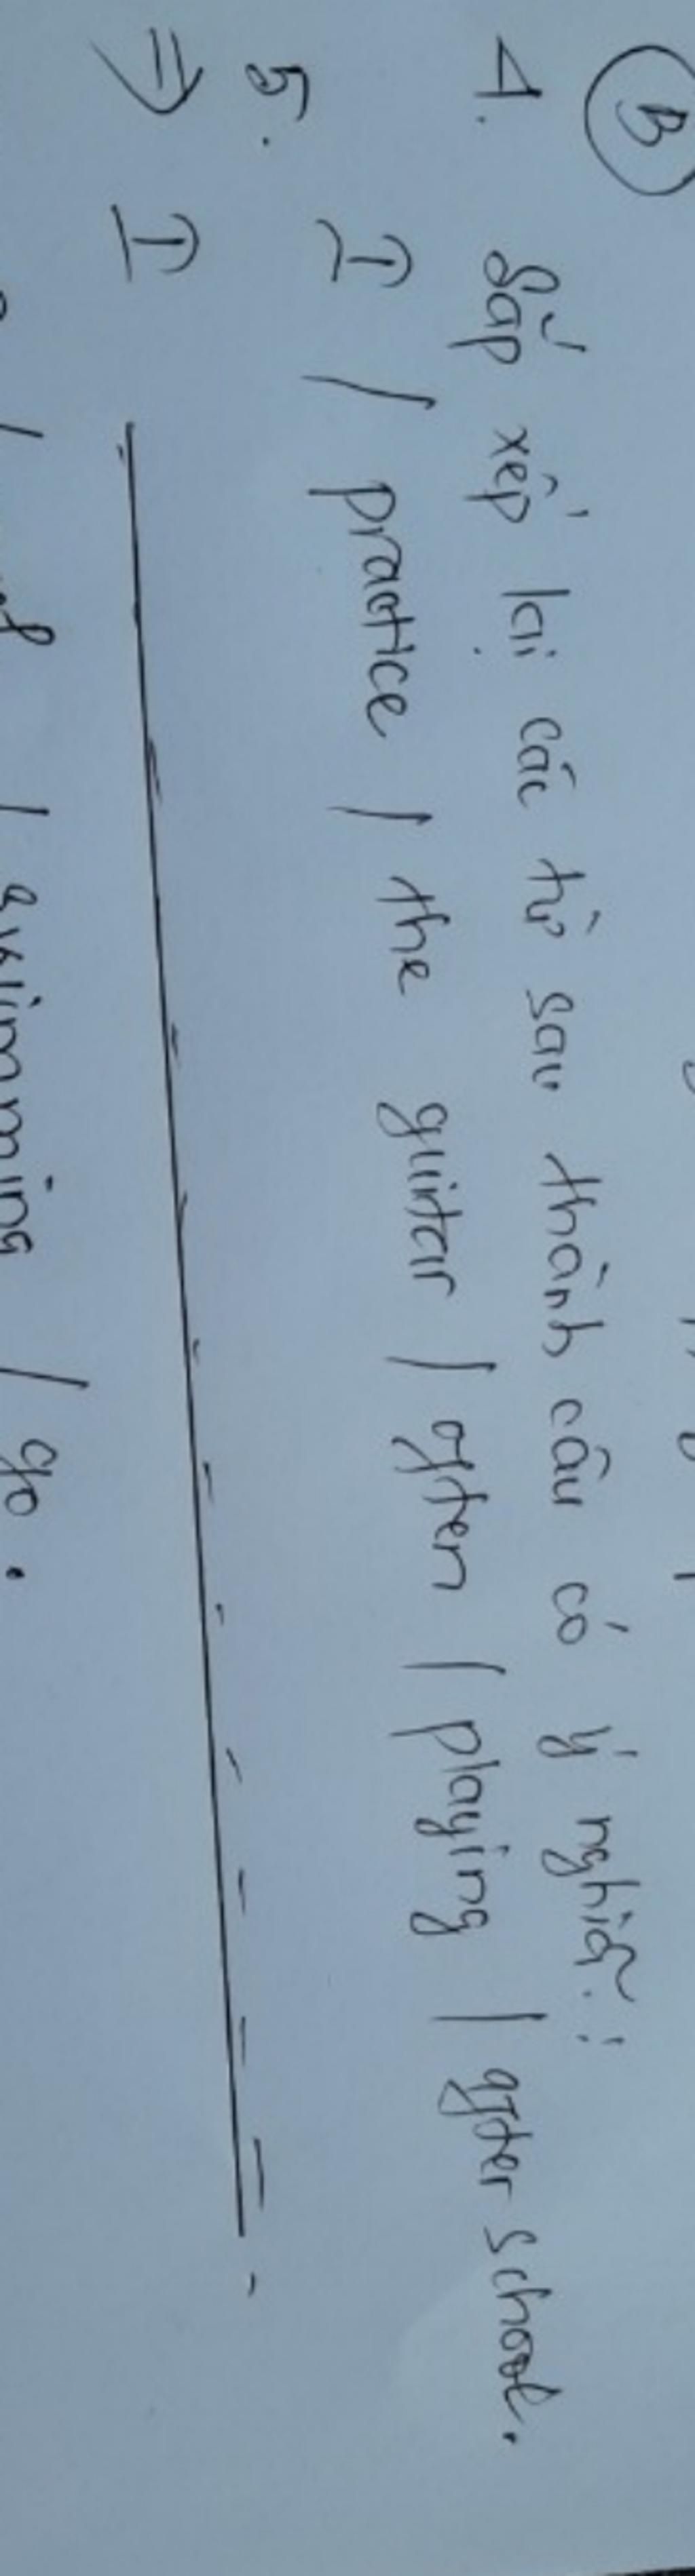 B
1. Sắp xếp lại các từ sau thành câu có ý nghĩa:
5. I / practice / the guintar / often / playing / after school.
⇒ I
/ swimming / go.